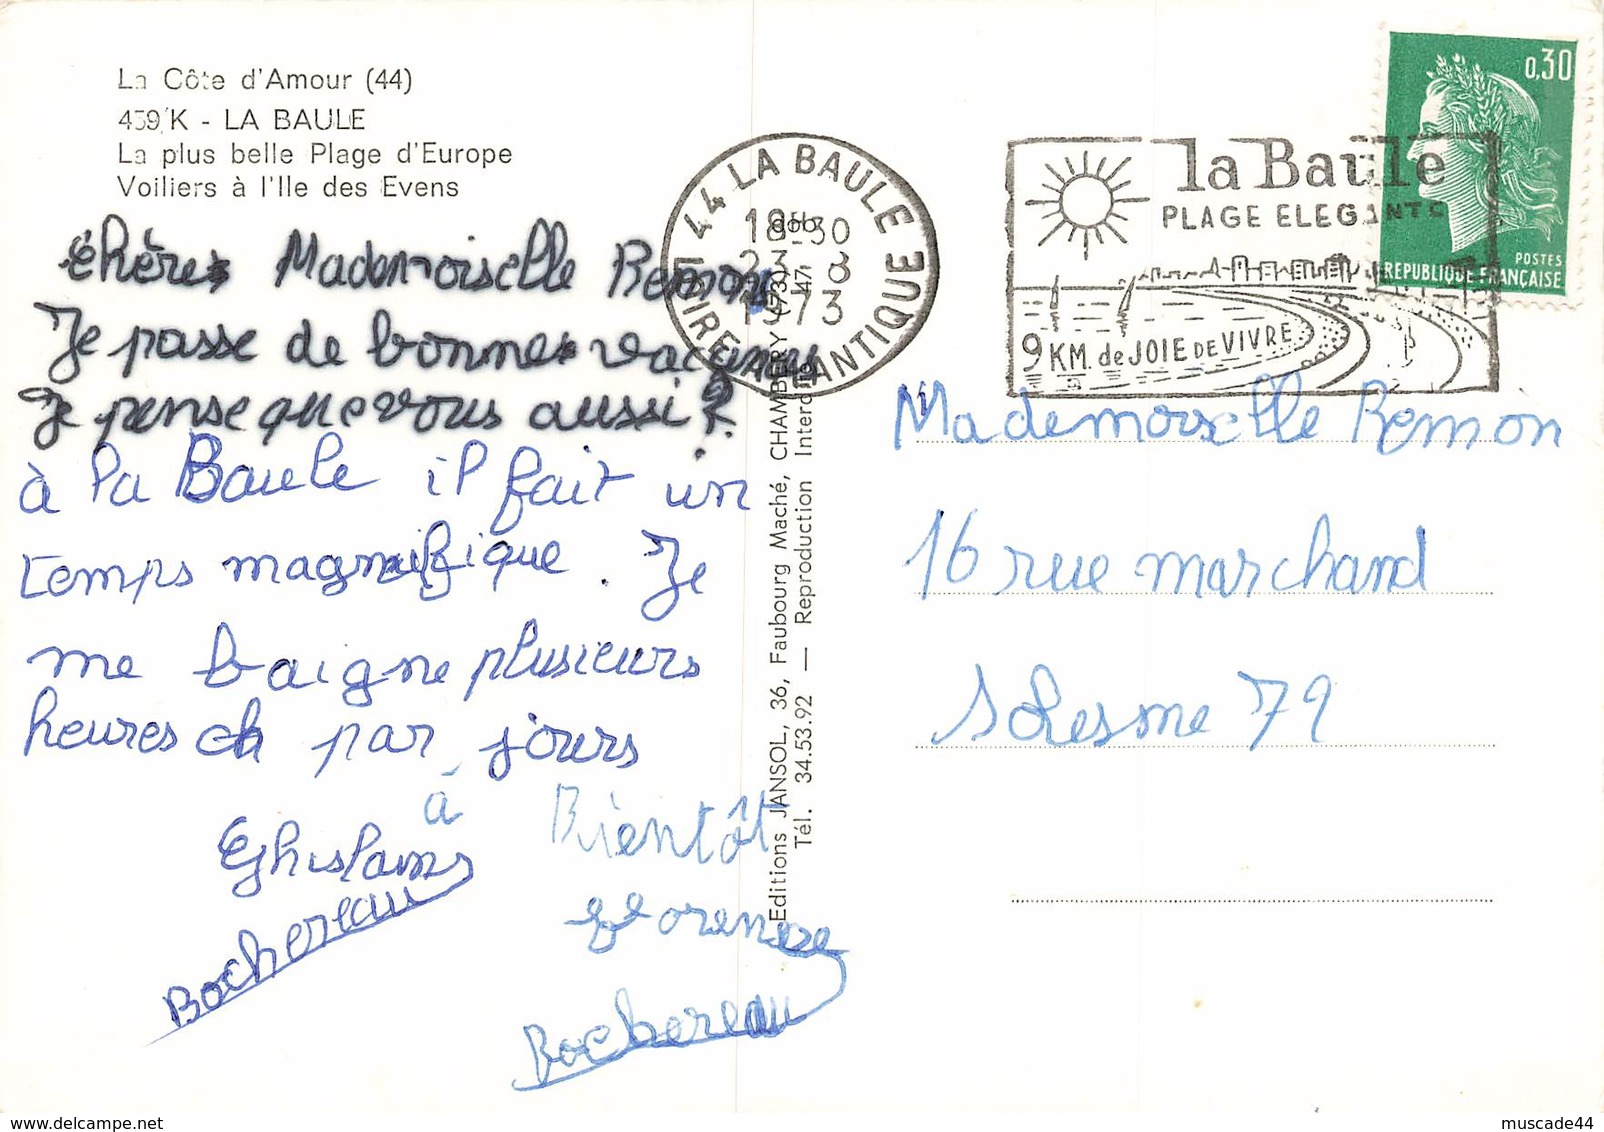 La Côte d'Amour (44)
439/K - LA BAULE
La plus belle Plage d'Europe
Voiliers à l'Ile des Evens
chère Mademoiselle Bemon
Je passe de bonne vacances
Je pense que vous aussi ?
à la Baule il fait un
temps magnifique. Je
me baigne plusieurs
heures par jours
à Bientôt
Ghislaine
Bochereau
Florence
Bochereau
Editions JANSOL, 36, Faubourg Maché, CHAMBERY (73)
Tél. 34.53.92 — Reproduction Interdite
44 LA BAULE
LOIRE ATLANTIQUE
18H30
23-8
1973
la Baule
PLAGE ELEGANTE
9 KM. de JOIE DE VIVRE
0,30
POSTES
REPUBLIQUE FRANÇAISE
Mademoiselle Bemon
16 rue marchand
Solesme 72
muscade44